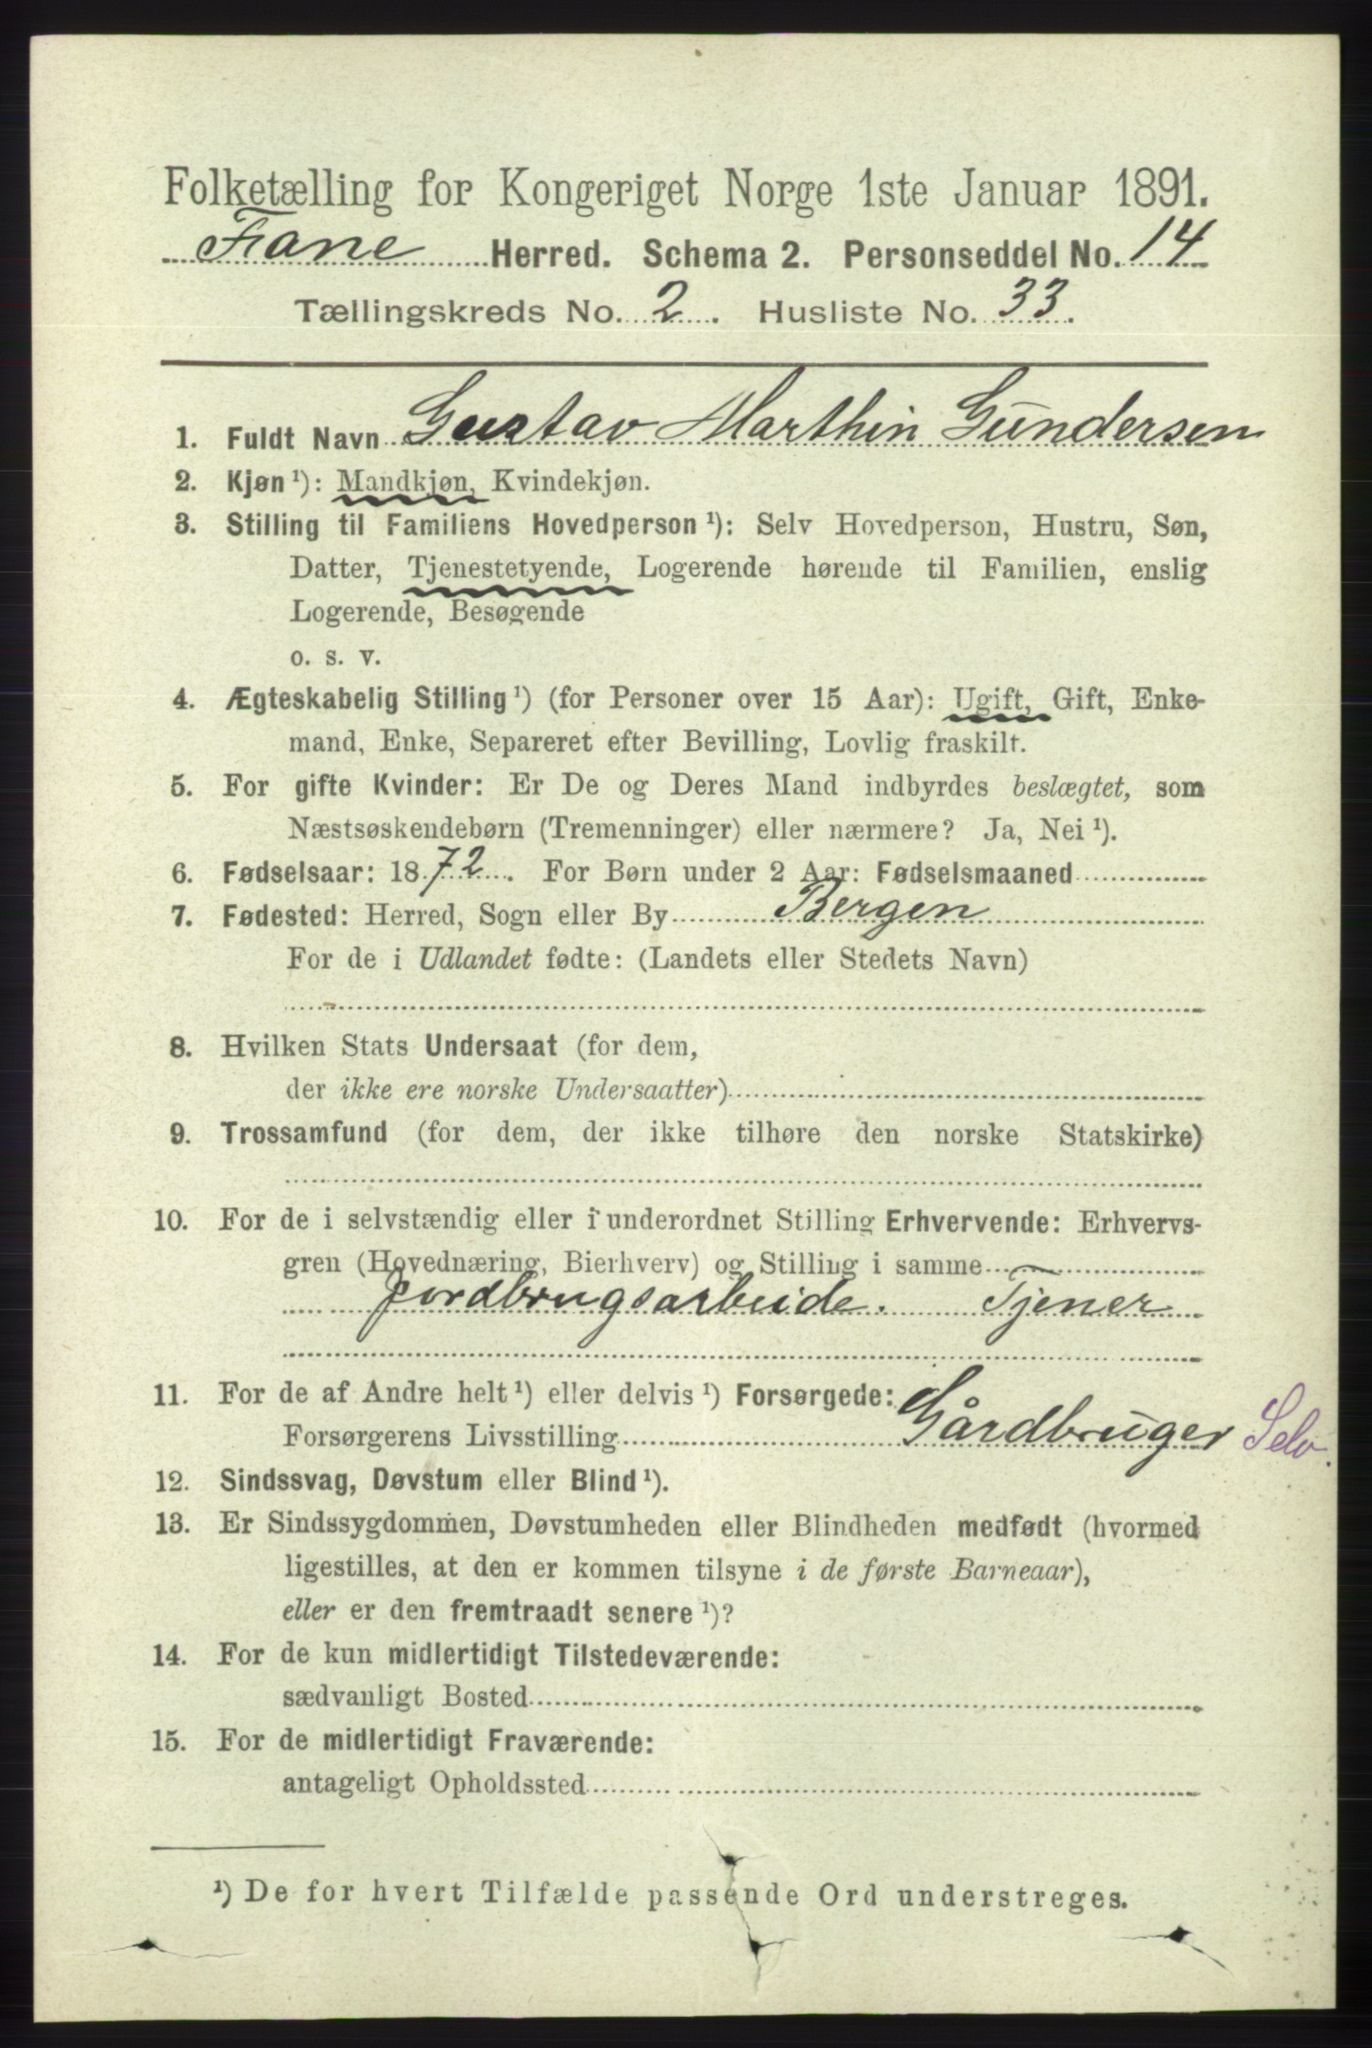 Folketælling for Kongeriget Norge 1ste Januar 1891.
Fane Herred. Schema 2. Personseddel No. 14
Tællingskreds No. 2. Husliste No. 33.
1. Fuldt Navn Gustav Marthin Gundersen
2. Kjøn ¹): Mandkjøn, Kvindekjøn.
3. Stilling til Familiens Hovedperson ¹): Selv Hovedperson, Hustru, Søn,
Datter, Tjenestetyende, Logerende hørende til Familien, enslig
Logerende, Besøgende
o. s. v.
4. Ægteskabelig Stilling ¹) (for Personer over 15 Aar): Ugift, Gift, Enke-
mand, Enke, Separeret efter Bevilling, Lovlig fraskilt.
5. For gifte Kvinder: Er De og Deres Mand indbyrdes beslægtet, som
Næstsøskendebørn (Tremenninger) eller nærmere? Ja, Nei ¹).
6. Fødselsaar: 1872. For Børn under 2 Aar: Fødselsmaaned
7. Fødested: Herred, Sogn eller By Bergen
For de i Udlandet fødte: (Landets eller Stedets Navn)
8. Hvilken Stats Undersaat (for dem,
der ikke ere norske Undersaatter)
9. Trossamfund (for dem, der ikke tilhøre den norske Statskirke)
10. For de i selvstændig eller i underordnet Stilling Erhvervende: Erhvervs-
gren (Hovednæring, Bierhverv) og Stilling i samme
Jordbrugsarbeide. Tjener
11. For de af Andre helt ¹) eller delvis ¹) Forsørgede:
Forsørgerens Livsstilling Gårdbruger Selv.
12. Sindssvag, Døvstum eller Blind ¹).
13. Er Sindssygdommen, Døvstumheden eller Blindheden medfødt (hvormed
ligestilles, at den er kommen tilsyne i de første Barneaar),
eller er den fremtraadt senere ¹)?
14. For de kun midlertidigt Tilstedeværende:
sædvanligt Bosted
15. For de midlertidigt Fraværende:
antageligt Opholdssted
¹) De for hvert Tilfælde passende Ord understreges.